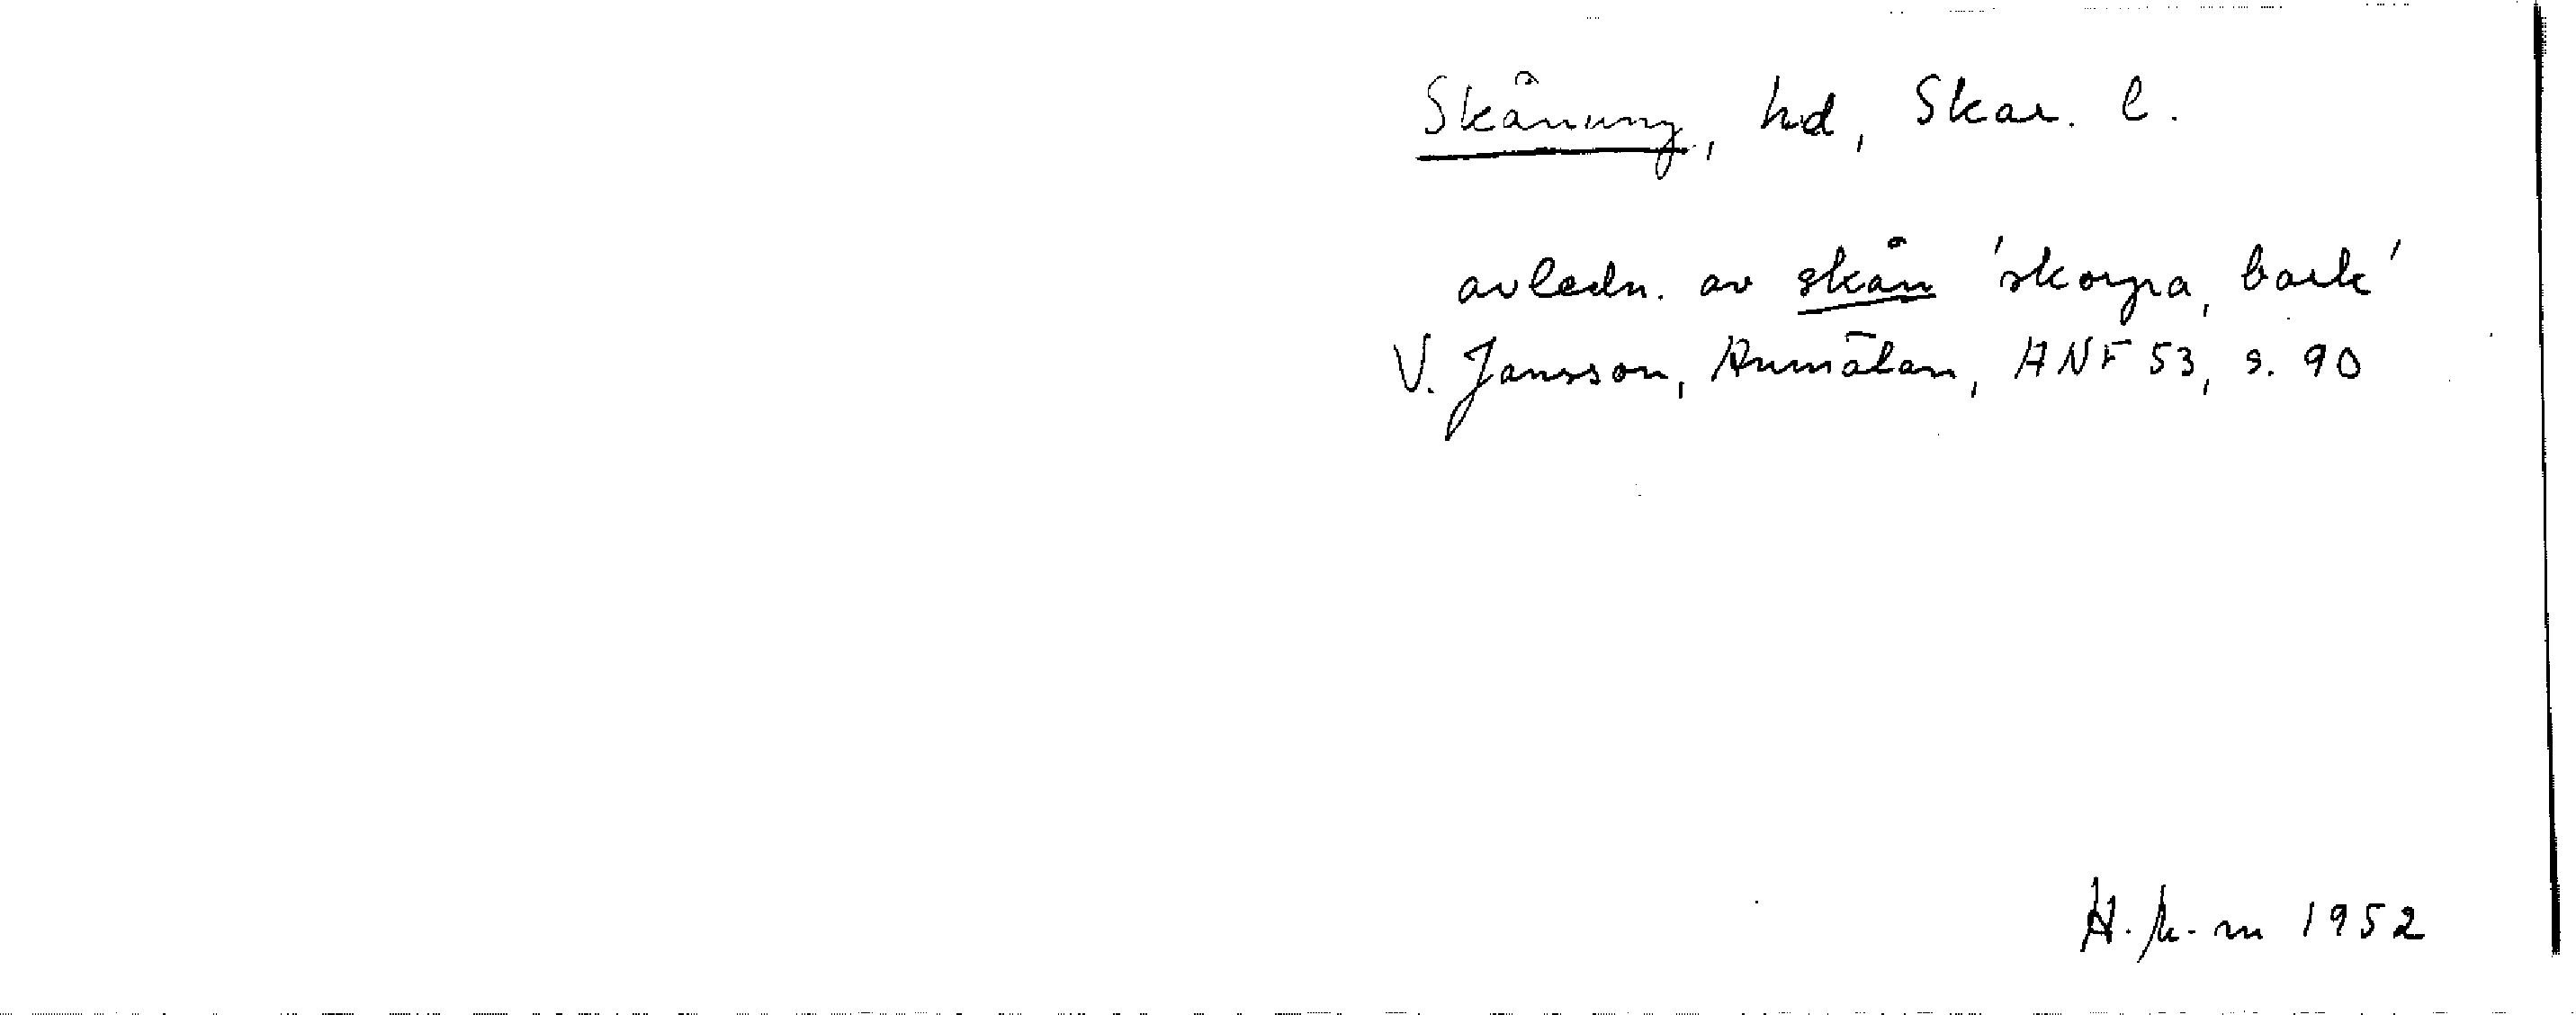 Skånung, hd, Skar. l.
avledn. av skån 'skorpa, bark'
V. Jansson, Anmälan, ANF 53, s. 90
1952